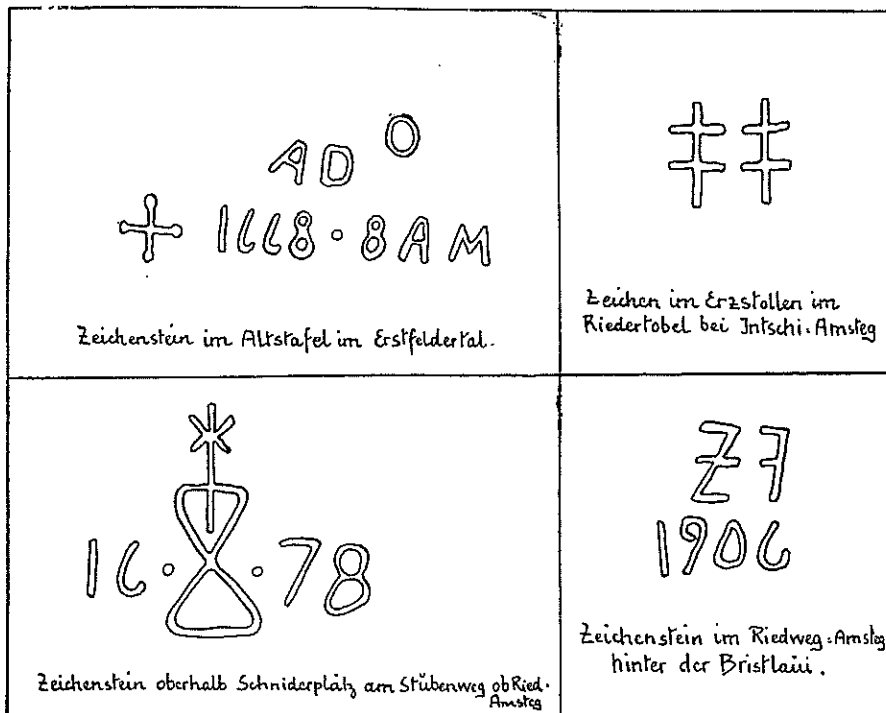 AD O
1668 · 8 A M
Zeichenstein im Altstafel im Erstfeldertal.
Zeichen im Erzstollen im
Riedertobel bei Intschi-Amsteg
16 · · 78
Zeichenstein oberhalb Schniderplätz am Stübenweg ob Ried-
Amsteg
Z F
1906
Zeichenstein im Riedweg-Amsteg
hinter der Bristlaui.